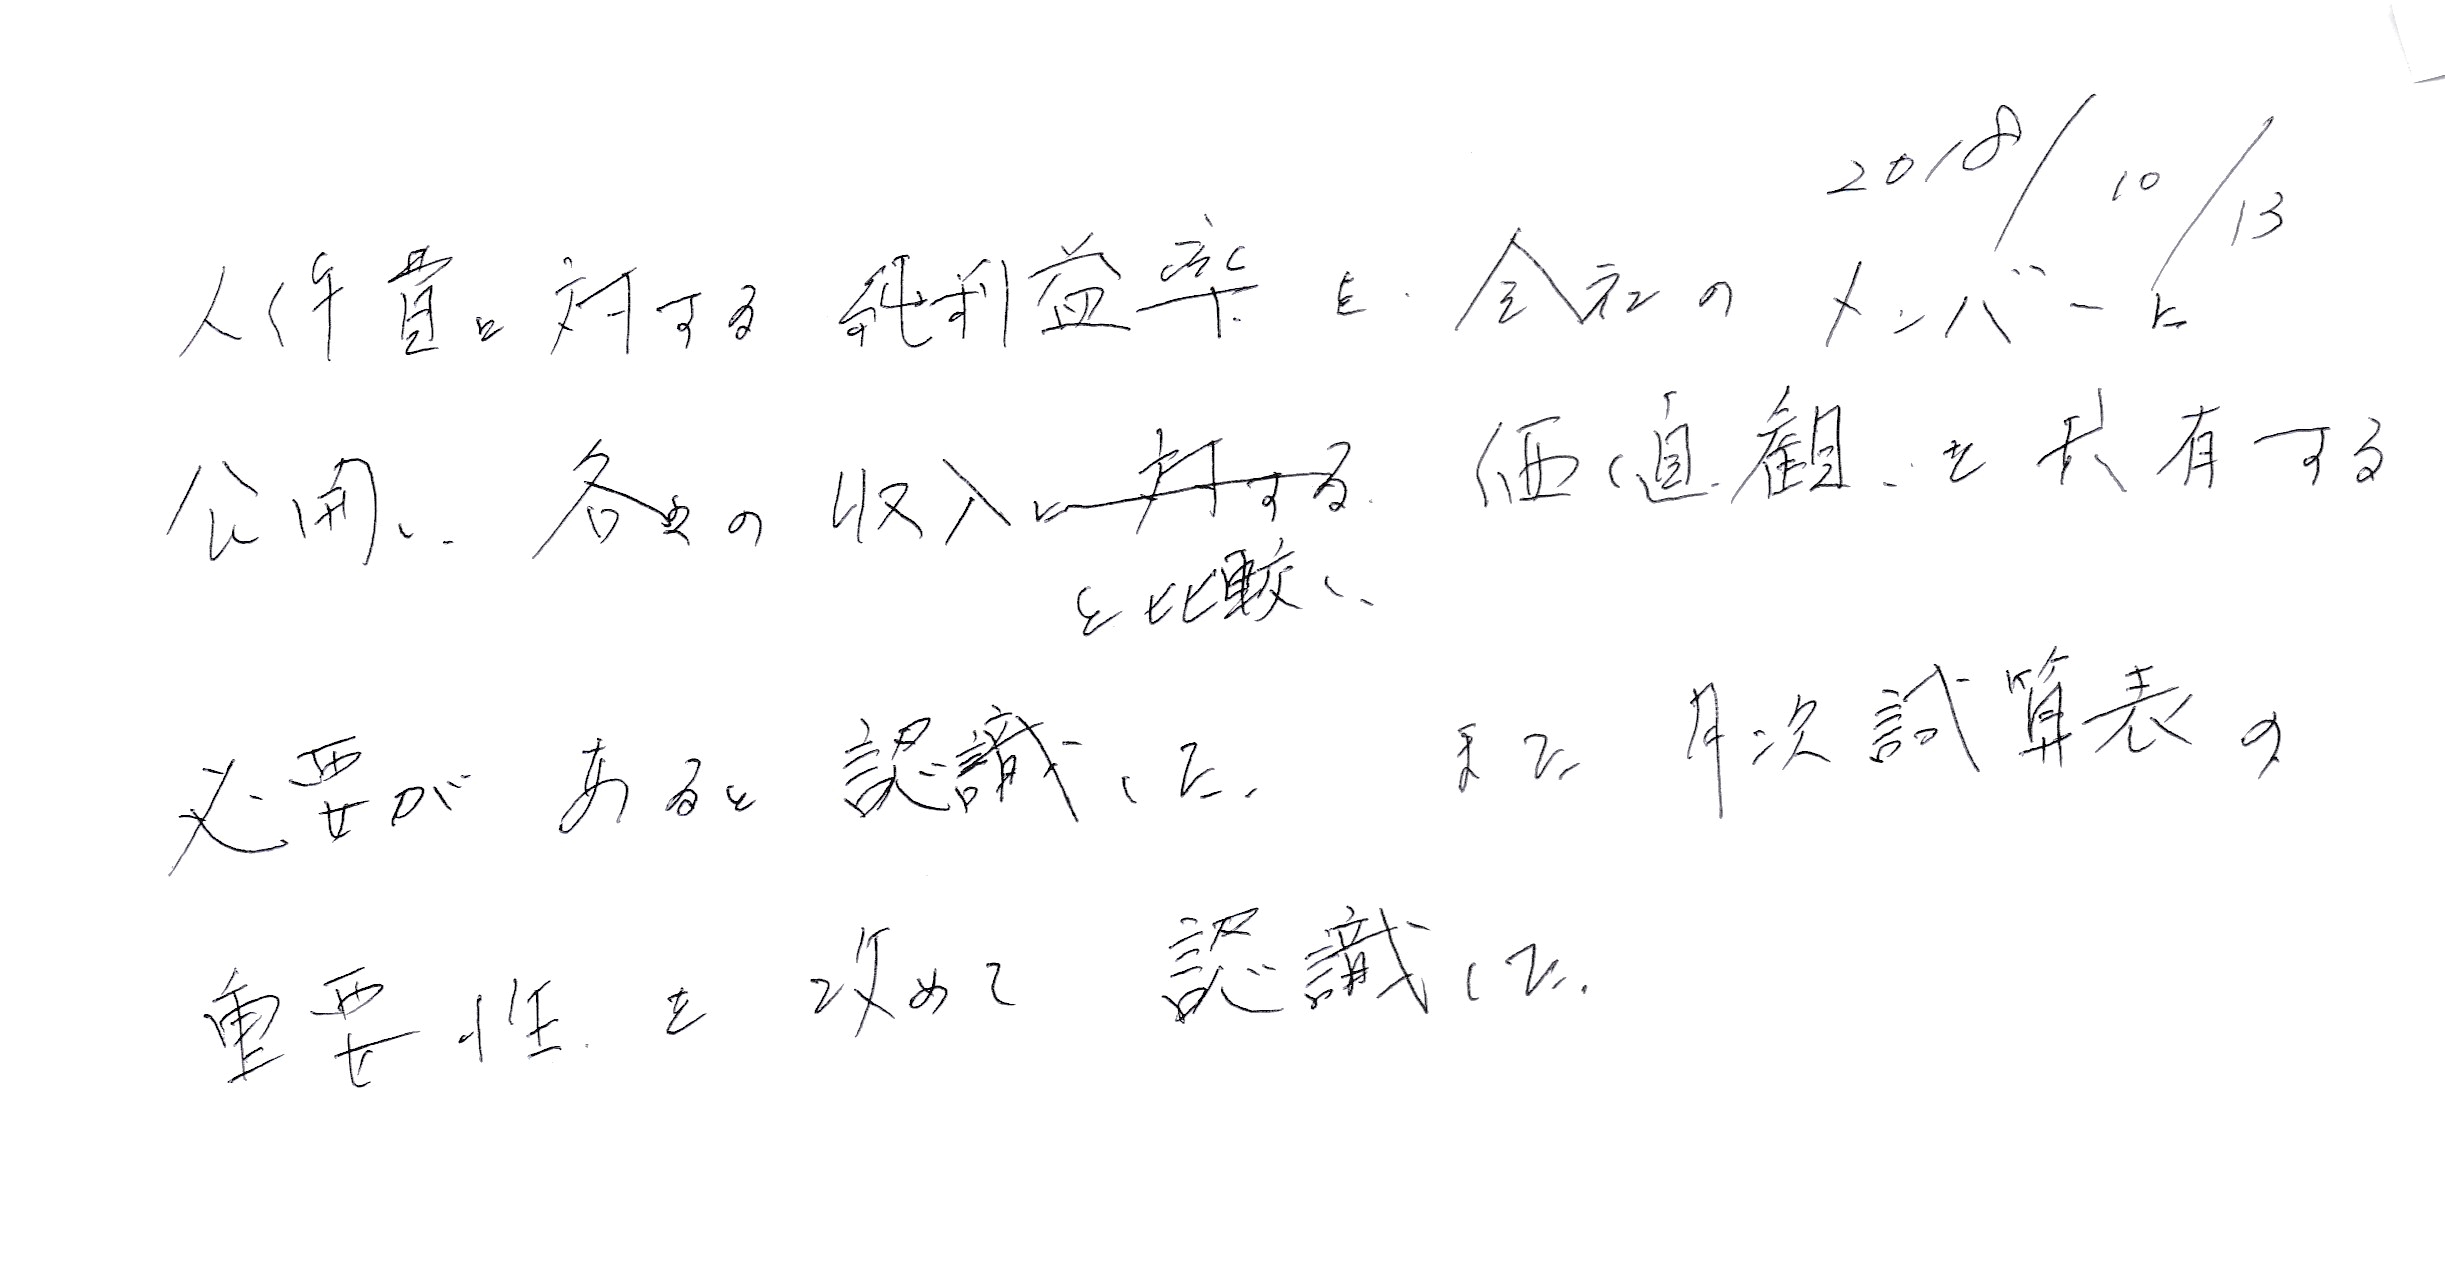 2018/10/13
人件費に対する純利益率を会社のメンバーに
公開し、各々の収入に対する価値観を共有する
と比較し、
必要があると認識した。また月次試算表の
重要性を改めて認識した。